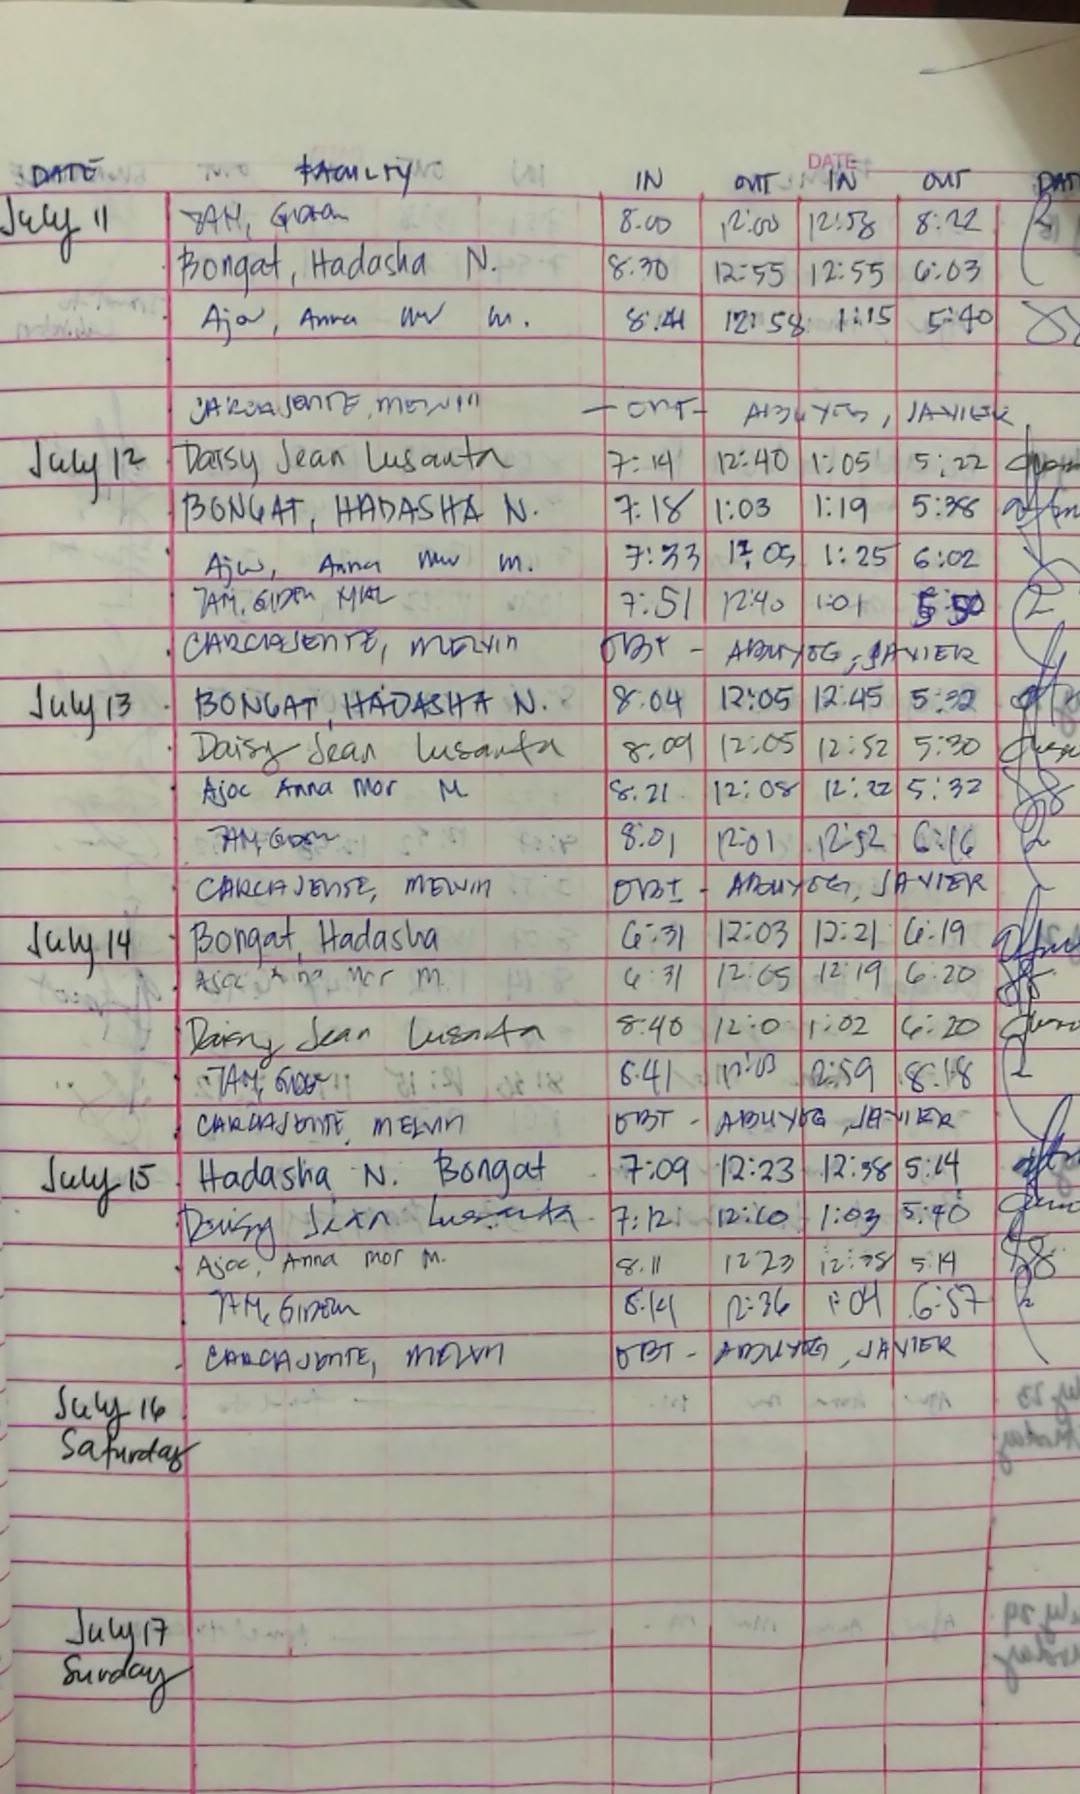 DATE FACULTY IN OUT IN OUT DAT
DATE
July 11 TAM, Gideon 8:00 12:00 12:58 8:22
Bongat, Hadasha N. 8:30 12:55 12:55 6:03
Ajoc, Anna Mor M. 8:41 12:58 1:15 5:40
CARCAJENTE, MELVIN - OBT - ABUYOG, JAVIER
July 12 Daisy Jean Lusanta 7:14 12:40 1:05 5:22
BONGAT, HADASHA N. 7:18 1:03 1:19 5:38
Ajoc, Anna Mor M. 7:33 12:05 1:25 6:02
TAM, GIDEON 7:51 12:40 1:01 5:50
CARCAJENTE, MELVIN OBT - ABUYOG, JAVIER
July 13 BONGAT, HADASHA N. 8:04 12:05 12:45 5:32
Daisy Jean Lusanta 8:09 12:05 12:52 5:30
Ajoc Anna Mor M 8:21 12:08 12:22 5:32
TAM, Gideon 8:01 12:01 12:52 6:16
CARCAJENTE, MELVIN OBT - ABUYOG, JAVIER
July 14 Bongat, Hadasha 6:31 12:03 12:21 6:19
Ajoc Anna Mor M. 6:31 12:05 12:19 6:20
Daisy Jean Lusanta 8:40 12:0 1:02 6:20
TAM, Gideon 8:41 12:03 12:59 8:18
CARCAJENTE, MELVIN OBT - ABUYOG, JAVIER
July 15 Hadasha N. Bongat 7:09 12:23 12:38 5:14
Daisy Jean Lusanta 7:12 12:10 1:03 5:40
Ajoc, Anna Mor M. 8:11 12:23 12:38 5:14
TAM, GIDEON 8:14 12:36 1:04 6:57
CARCAJENTE, MELVIN OBT - ABUYOG, JAVIER
July 16
Saturday
July 17
Sunday